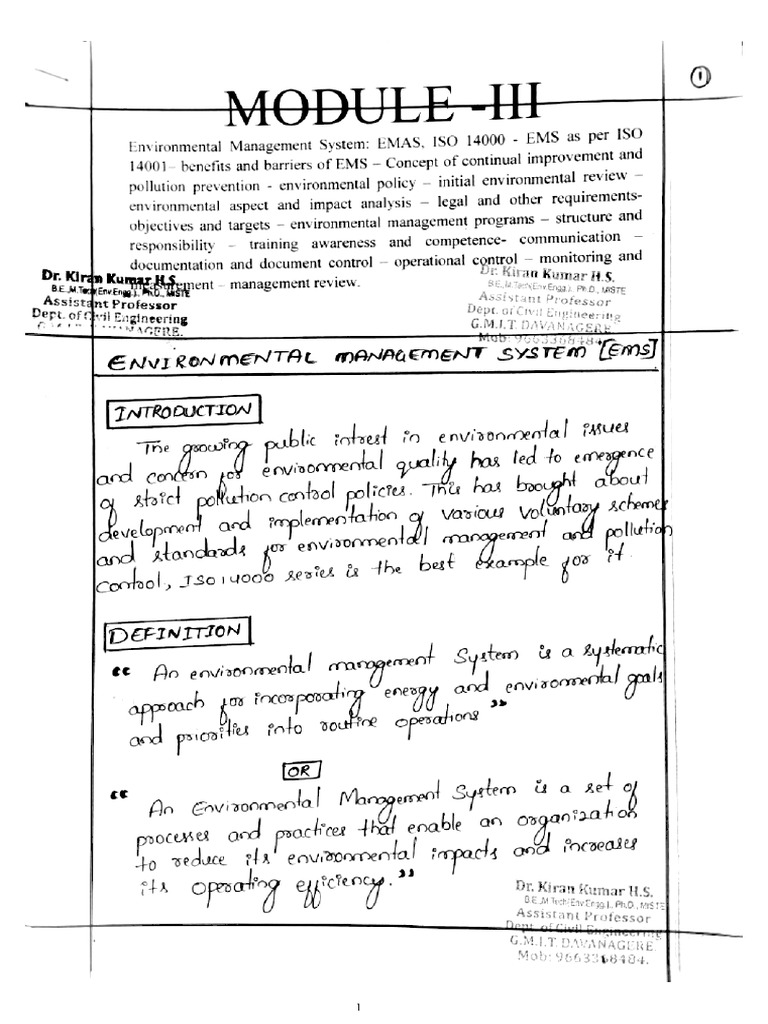 ①
MODULE -III
Environmental Management System: EMAS, ISO 14000 - EMS as per ISO
14001– benefits and barriers of EMS – Concept of continual improvement and
pollution prevention - environmental policy – initial environmental review –
environmental aspect and impact analysis – legal and other requirements-
objectives and targets – environmental management programs – structure and
responsibility – training awareness and competence- communication –
documentation and document control – operational control – monitoring and
measurement – management review.
Dr. Kiran Kumar H.S.
B.E.,M.Tech(Env.Engg.)., Ph.D., MISTE
Assistant Professor
Dept. of Civil Engineering
G.M.I.T. DAVANAGERE.
Dr. Kiran Kumar H.S.
B.E.,M.Tech(Env.Engg.)., Ph.D., MISTE
Assistant Professor
Dept. of Civil Engineering
G.M.I.T. DAVANAGERE.
Mob: 9663368484.
ENVIRONMENTAL MANAGEMENT SYSTEM [EMS]
INTRODUCTION
The growing public intrest in environmental issues
and concern for environmental quality has led to emergence
of strict pollution control policies. This has brought about
development and implementation of various voluntary schemes
and standards for environmental management and pollution
control, ISO 14000 series is the best example for it.
DEFINITION
“ An environmental management System is a systematic
approach for incorporating energy and environmental goals
and priorities into routine operations ”
OR
“ An Environmental Management System is a set of
processes and practices that enable an organization
to reduce its environmental impacts and increases
its operating efficiency. ”
Dr. Kiran Kumar H.S.
B.E.,M.Tech(Env.Engg.)., Ph.D., MISTE
Assistant Professor
Dept. of Civil Engineering
G.M.I.T. DAVANAGERE.
Mob: 9663368484.
1